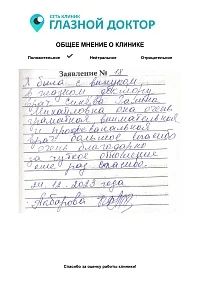 СЕТЬ КЛИНИК
ГЛАЗНОЙ ДОКТОР
ОБЩЕЕ МНЕНИЕ О КЛИНИКЕ
Положительное Нейтральное Отрицательное
Заявление № 18
Я была с внуком
в глазном доктору
врач Михайловна она очень
грамотная внимательная
и
врач большое спасибо
очень благодарна
за чуткое отношение
еще раз спасибо.
21.12.2023 года
Акбарова
Спасибо за оценку работы клиники!